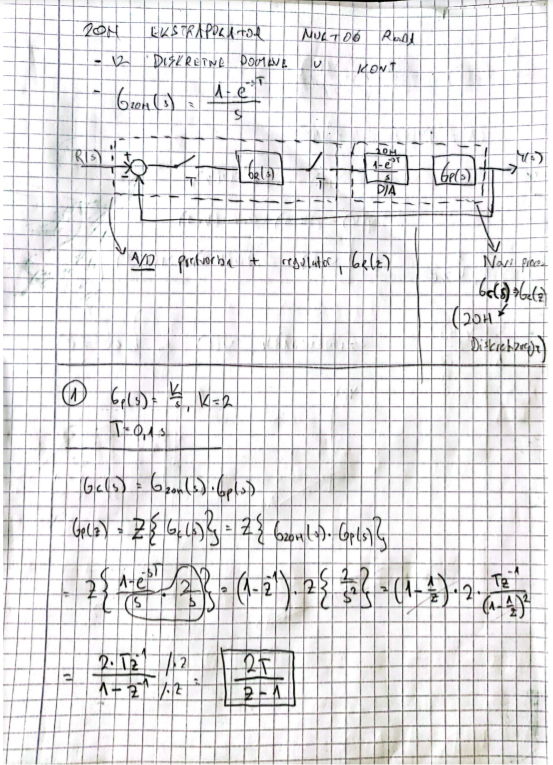 ZOH EKSTRAPOLATOR NULTOG REDA
- IZ DISKRETNE DOMENE U KONT
- GZOH(s) = (1-e^-sT)/s
R(s) + - T GR(s) T ZOH (1-e^-sT)/s D/A Gp(s) Y(s)
A/D pretvorba + regulator, GR(z)
Novi proces
Gc(s) → Gc(z)
(ZOH
Diskretizacija)
1 Gp(s) = K/s, K=2
T=0,1 s
Gc(s) = Gzoh(s) · Gp(s)
Gp(z) = Z{Gc(s)} = Z{GZOH(s) · Gp(s)}
= Z{(1-e^-sT)/s · 2/s} = (1-z^-1) · Z{2/s^2} = (1-1/z) · 2 · Tz^-1/(1-1/z)^2
= 2·Tz^-1/(1-z^-1) /·z /·z = 2T/(z-1)